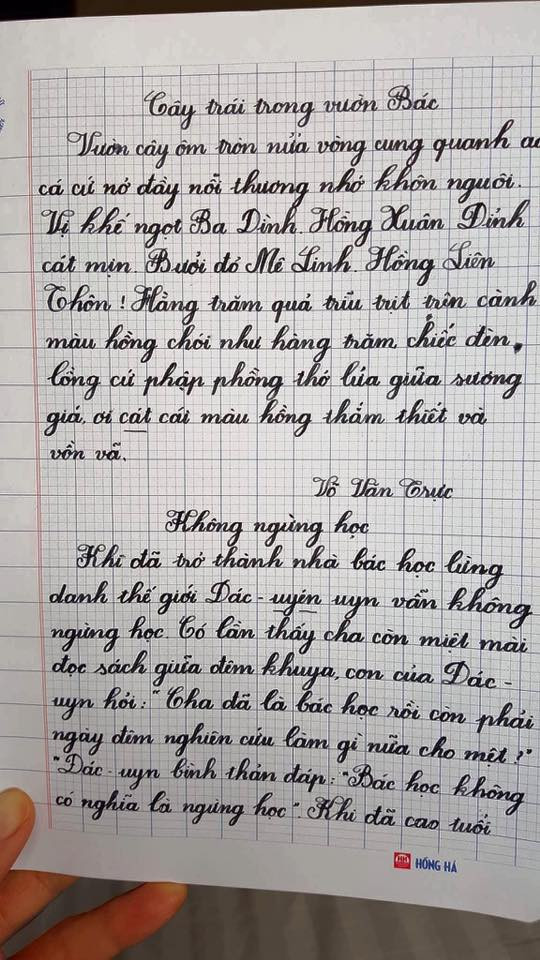 Cây trái trong vườn Bác
Vườn cây ôm tròn nửa vòng cung quanh ao
cá cứ nở đầy nỗi thương nhớ khôn nguôi.
Vị khế ngọt Ba Đình. Hồng Xuân Đỉnh
cát mịn. Bưởi đỏ Mê Linh. Hồng Liên
Thôn! Hằng trăm quả trĩu trịt trên cành
màu hồng chói như hàng trăm chiếc đèn
lồng cứ phập phồng thở lửa giữa sương
giá, ơi cát cái màu hồng thắm thiết và
vồn vã.
Võ Văn Trực
Không ngừng học
Khi đã trở thành nhà bác học lừng
danh thế giới Dác-uyên uyn vẫn không
ngừng học. Có lần thấy cha còn miệt mài
đọc sách giữa đêm khuya, con của Dác-
uyn hỏi: "Cha đã là bác học rồi còn phải
ngày đêm nghiên cứu làm gì nữa cho mệt?"
"Dác-uyn bình thản đáp: "Bác học không
có nghĩa là ngưng học". Khi đã cao tuổi
HH HỒNG HÀ